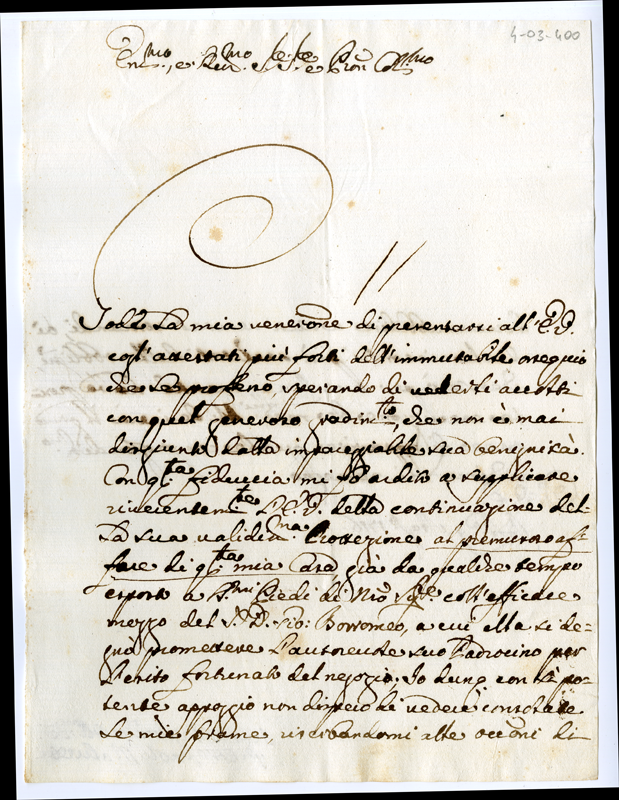 4-03-400
Em.mo, e Rev.mo Sig.re Sig.re e Pron Col.mo
Gode la mia venerone di presentarsi all'E.V.
cogl'attestati più forti dell'immutabile ossequio
che le professo, sperando di vederli accolti
con quel generoso gradim.to, che non è mai
disgiunto dalla impareggiabile sua benignità.
Con q.ta fiducia mi fò ardito a supplicare
riverentem.te l'E.V. della continuazione del-
la sua validis.ma Protezione al premuroso af-
fare di q.ta mia Casa già da qualche tempo
esposto a S.mi Piedi di N.ro Sig.re coll'efficace
mezzo del S.P. Gio: Borromeo, a cui ella si de=
gnò promettere l'autorevole suo Padrocinio per
l'esito fortunato del negozio. Io dunq con sì po-
tente appoggio non dispero di vedere consolate
le mie brame, riserbandomi alle occoni di